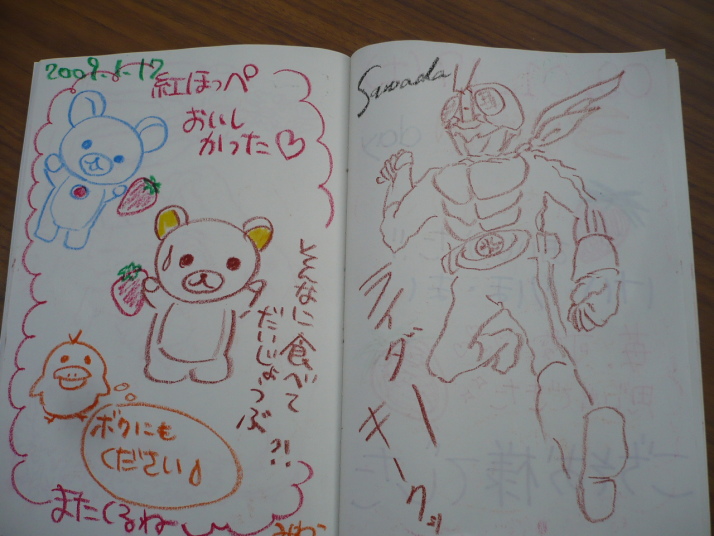 2009.1.17
紅ほっぺ
おいし
かった♡
そんなに食べて
だいじょうぶ
?!
ボクにも
ください♪
またくるねー
みわこ
Sawada
ライダーキーック!!